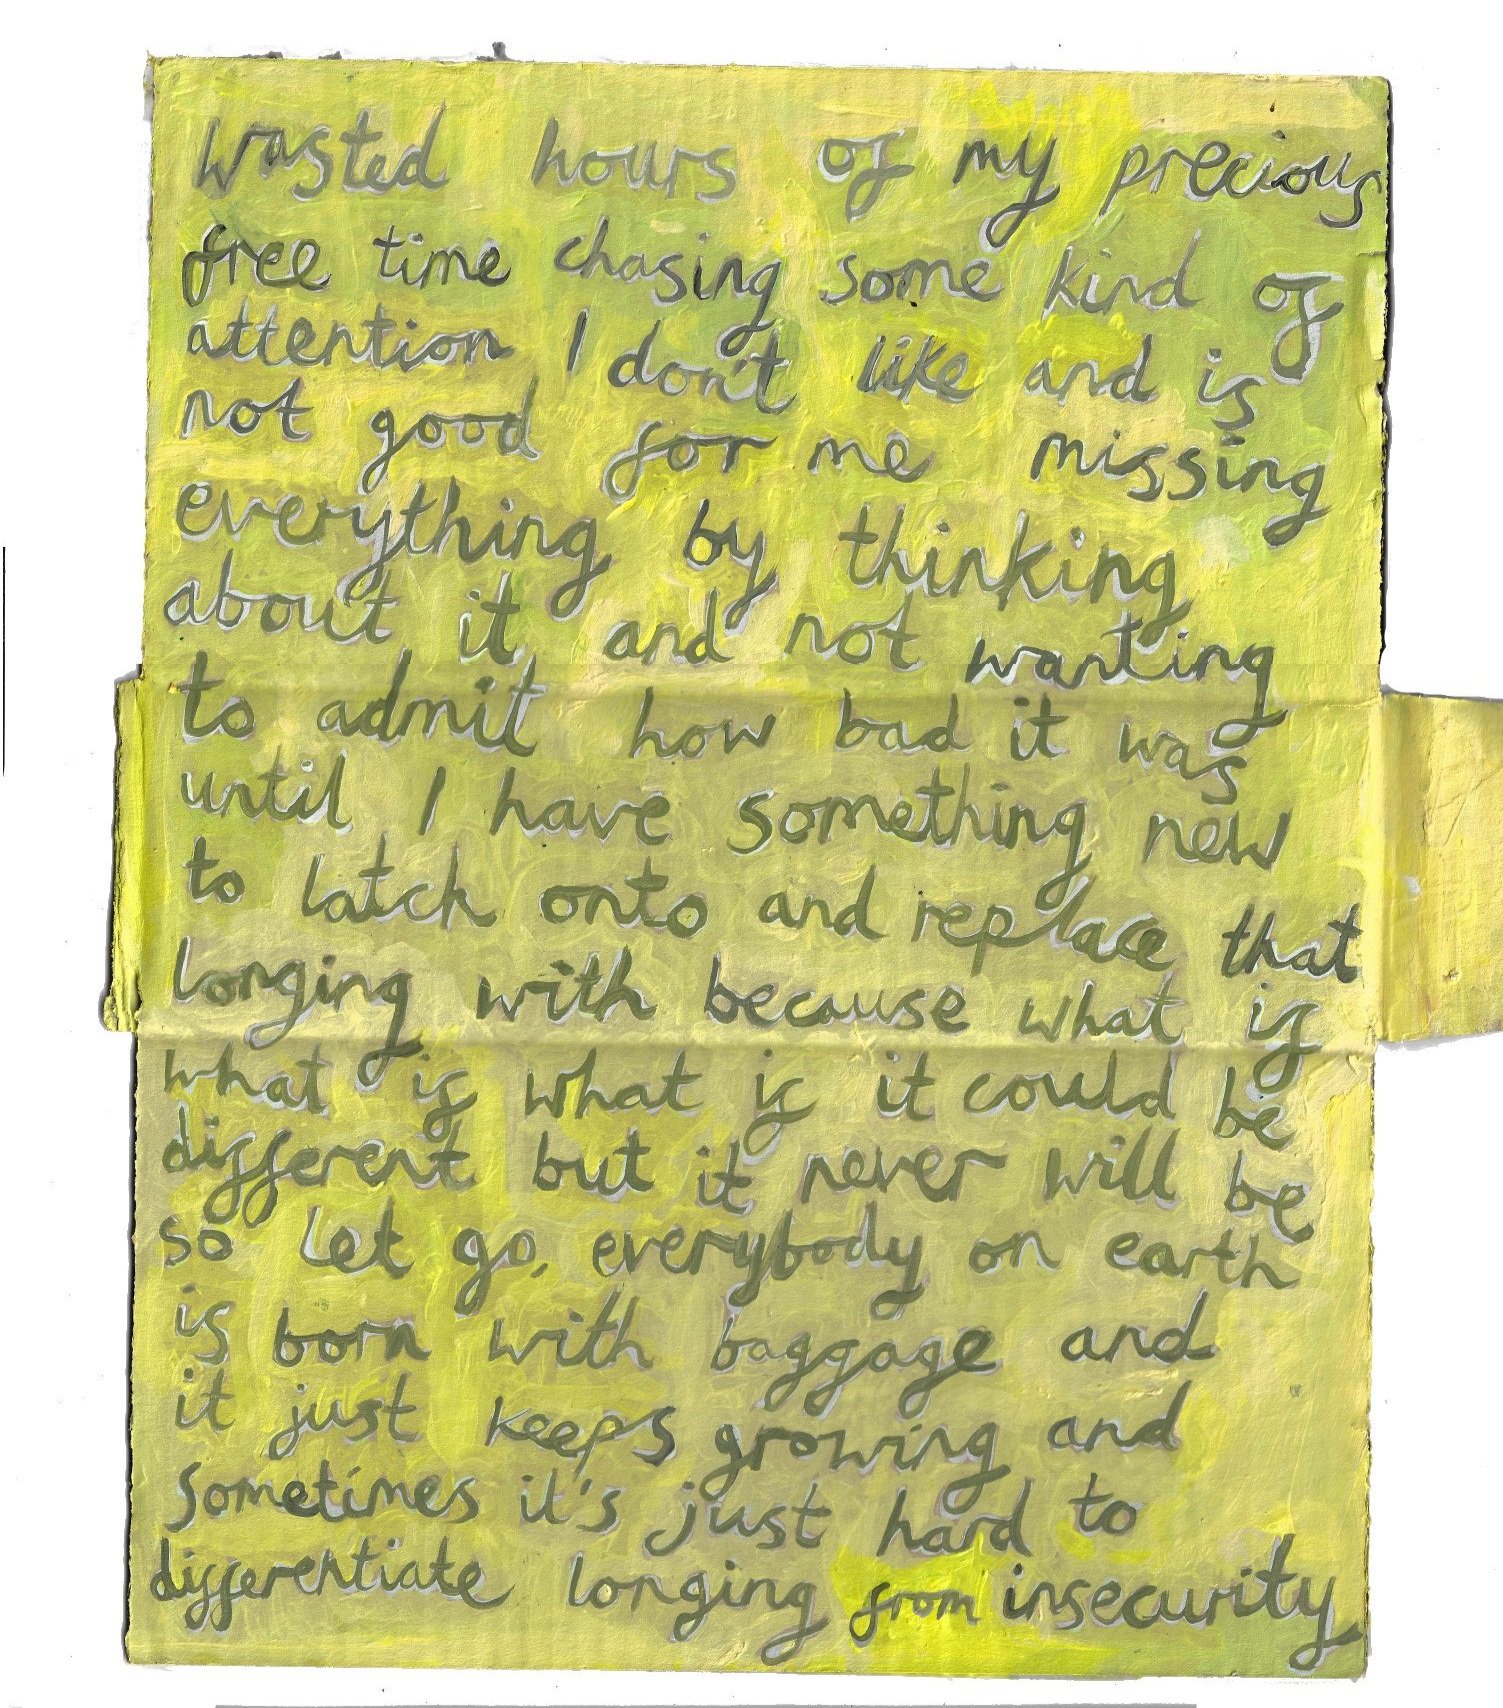 wasted hours of my precious
free time chasing some kind of
attention I don't like and is
not good for me missing
everything by thinking
about it and not wanting
to admit how bad it was
until I have something new
to latch onto and replace that
longing with because what is
what is what is it could be
different but it never will be
so let go, everybody on earth
is born with baggage and
it just keeps growing and
sometimes it's just hard to
differentiate longing from insecurity